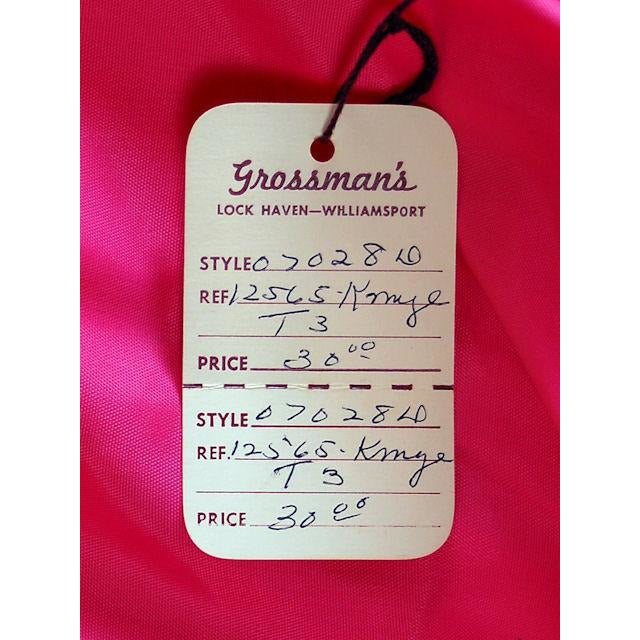 Grossman's
LOCK HAVEN—WILLIAMSPORT
STYLE 07028 D
REF. 12565-Kmye
T 3
PRICE 30 00
STYLE 07028 D
REF. 12565-Kmye
T 3
PRICE 30 00